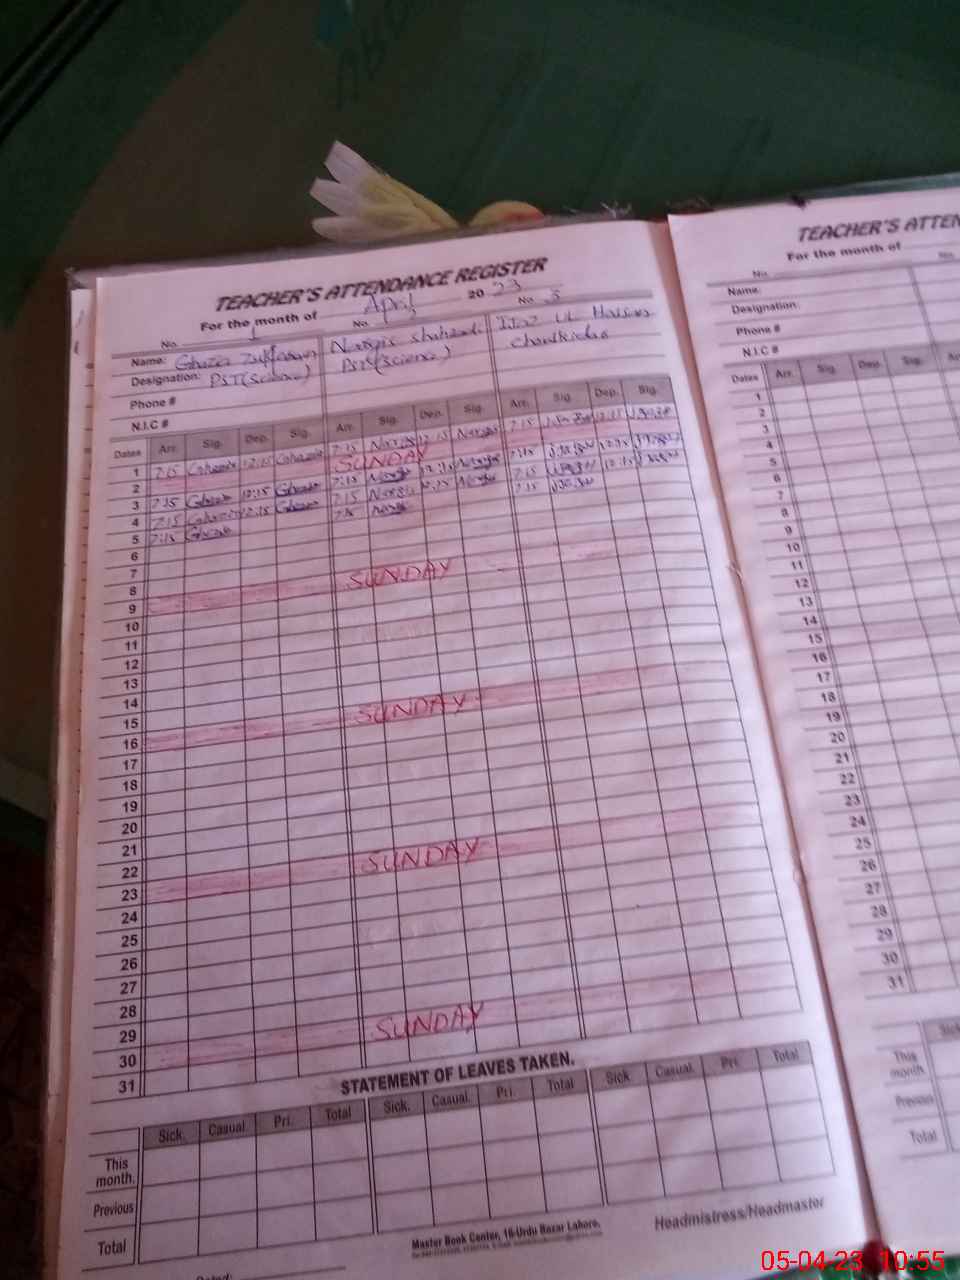 TEACHER'S ATTENDANCE REGISTER
For the month of April 2023
No. 1 No. No. 3
Name: Ghazia Nargis Shahzadi Ijaz Ul Hassan
Designation: PST(Science) PST(Science)
Phone #
N.I.C #
Dates Arr. Sig. Dep. Sig. Arr. Sig. Dep. Sig. Arr. Sig. Dep. Sig.
1 7:15 12:15 7:15 Nargis 12:15 Nargis 7:15 12:15
2 SUNDAY
3 7:15 12:15 7:15 Nargis 12:15 Nargis 7:15 12:15
4 7:15 12:15 7:15 Nargis 12:15 Nargis 7:15 12:15
5 7:15 7:15 Nargis 7:15
6
7
8
9 SUNDAY
10
11
12
13
14
15
16 SUNDAY
17
18
19
20
21
22
23 SUNDAY
24
25
26
27
28
29
30 SUNDAY
31
STATEMENT OF LEAVES TAKEN.
Sick. Casual. Pri. Total Sick. Casual. Pri. Total Sick. Casual. Pri. Total
This month.
Previous
Total
Master Book Center, 16-Urdu Bazar Lahore.
Headmistress/Headmaster
TEACHER'S ATTEN
For the month of
No.
Name:
Designation:
Phone #
N.I.C #
Dates Arr. Sig. Dep. Sig.
1
2
3
4
5
6
7
8
9
10
11
12
13
14
15
16
17
18
19
20
21
22
23
24
25
26
27
28
29
30
31
This month.
Previous
Total
05-04-23 10:55